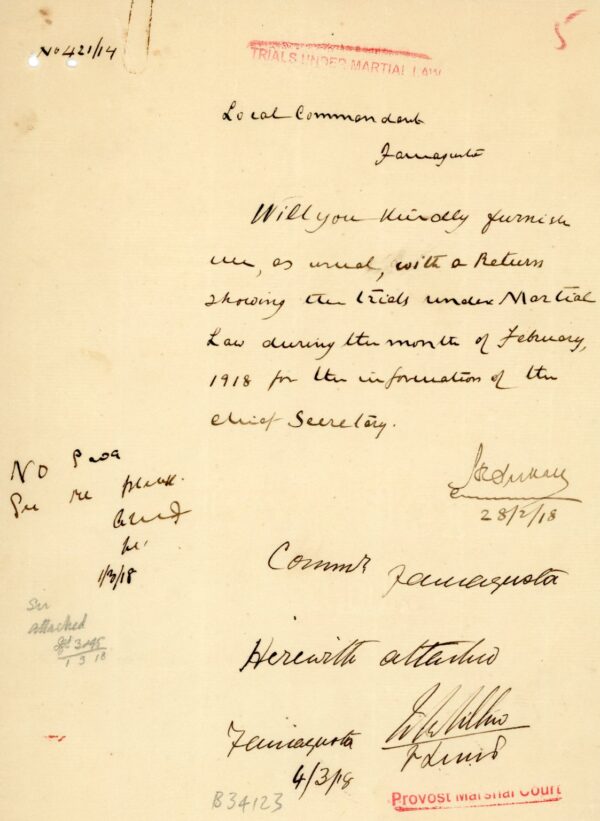 No 421/14
5
TRIALS UNDER MARTIAL LAW
Local Commandant
Famagusta
Will you kindly furnish
me, as usual, with a Return
showing the trials under Martial
Law during the month of February,
1918 for the information of the
Chief Secretary.
28/2/18
NO
please.
1/3/18
Sir
attached
1 3 18
Commr Famagusta
Herewith attached
Famagusta
4/3/18
B34123
Provost Marshal Court